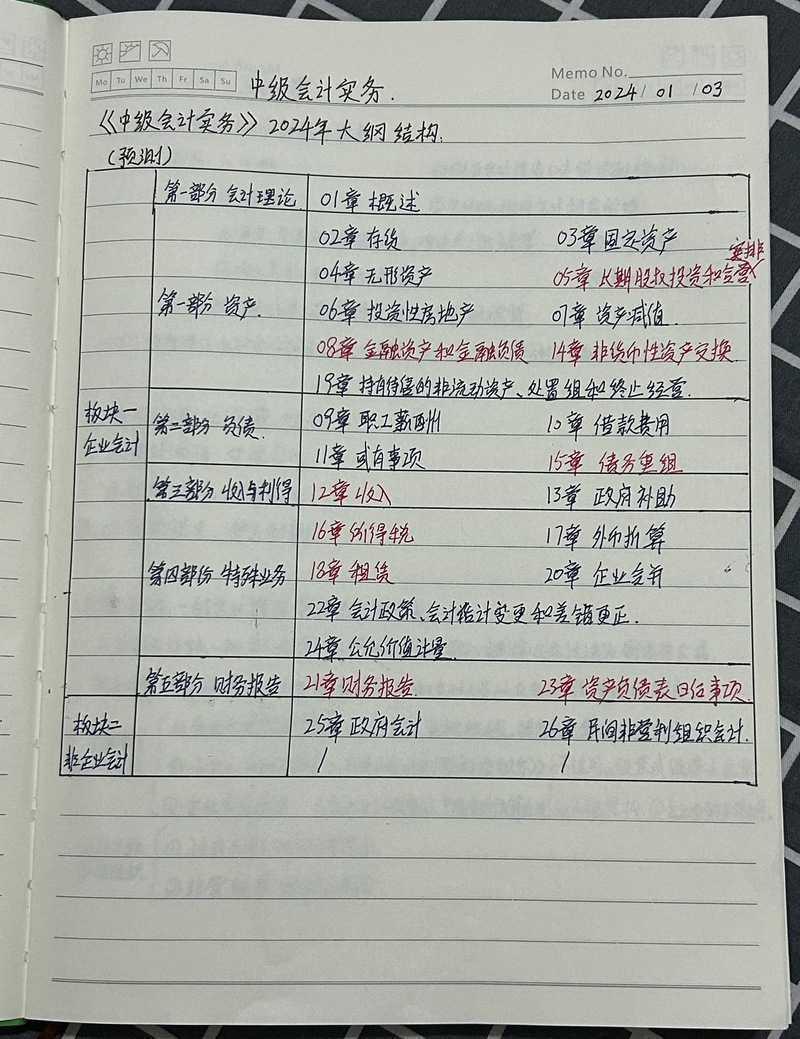 Mo Tu We Th Fr Sa Su
中级会计实务.
Memo No.
Date 2024/ 01 /03
《中级会计实务》2024年大纲结构:
(预测)
第一部分 会计理论 01章 概述
02章 存货 03章 固定资产
实排
04章 无形资产 05章 长期股权投资和合营
第一部分 资产. 06章 投资性房地产 07章 资产减值.
08章 金融资产和金融负债 14章 非货币性资产交换
19章 持有待售的非流动资产、处置组和终止经营.
板块一
企业会计
第二部分 负债. 09章 职工薪酬 10章 借款费用
11章 或有事项 15章 债务重组
第三部分 收入与利得 12章 收入 13章 政府补助
16章 所得税 17章 外币折算
第四部份 特殊业务 18章 租赁 20章 企业合并
22章 会计政策、会计估计变更和差错更正.
24章 公允价值计量.
第五部分 财务报告 21章 财务报告 23章 资产负债表日后事项.
板块二
非企业会计
25章 政府会计 26章 民间非营利组织会计.
/ /